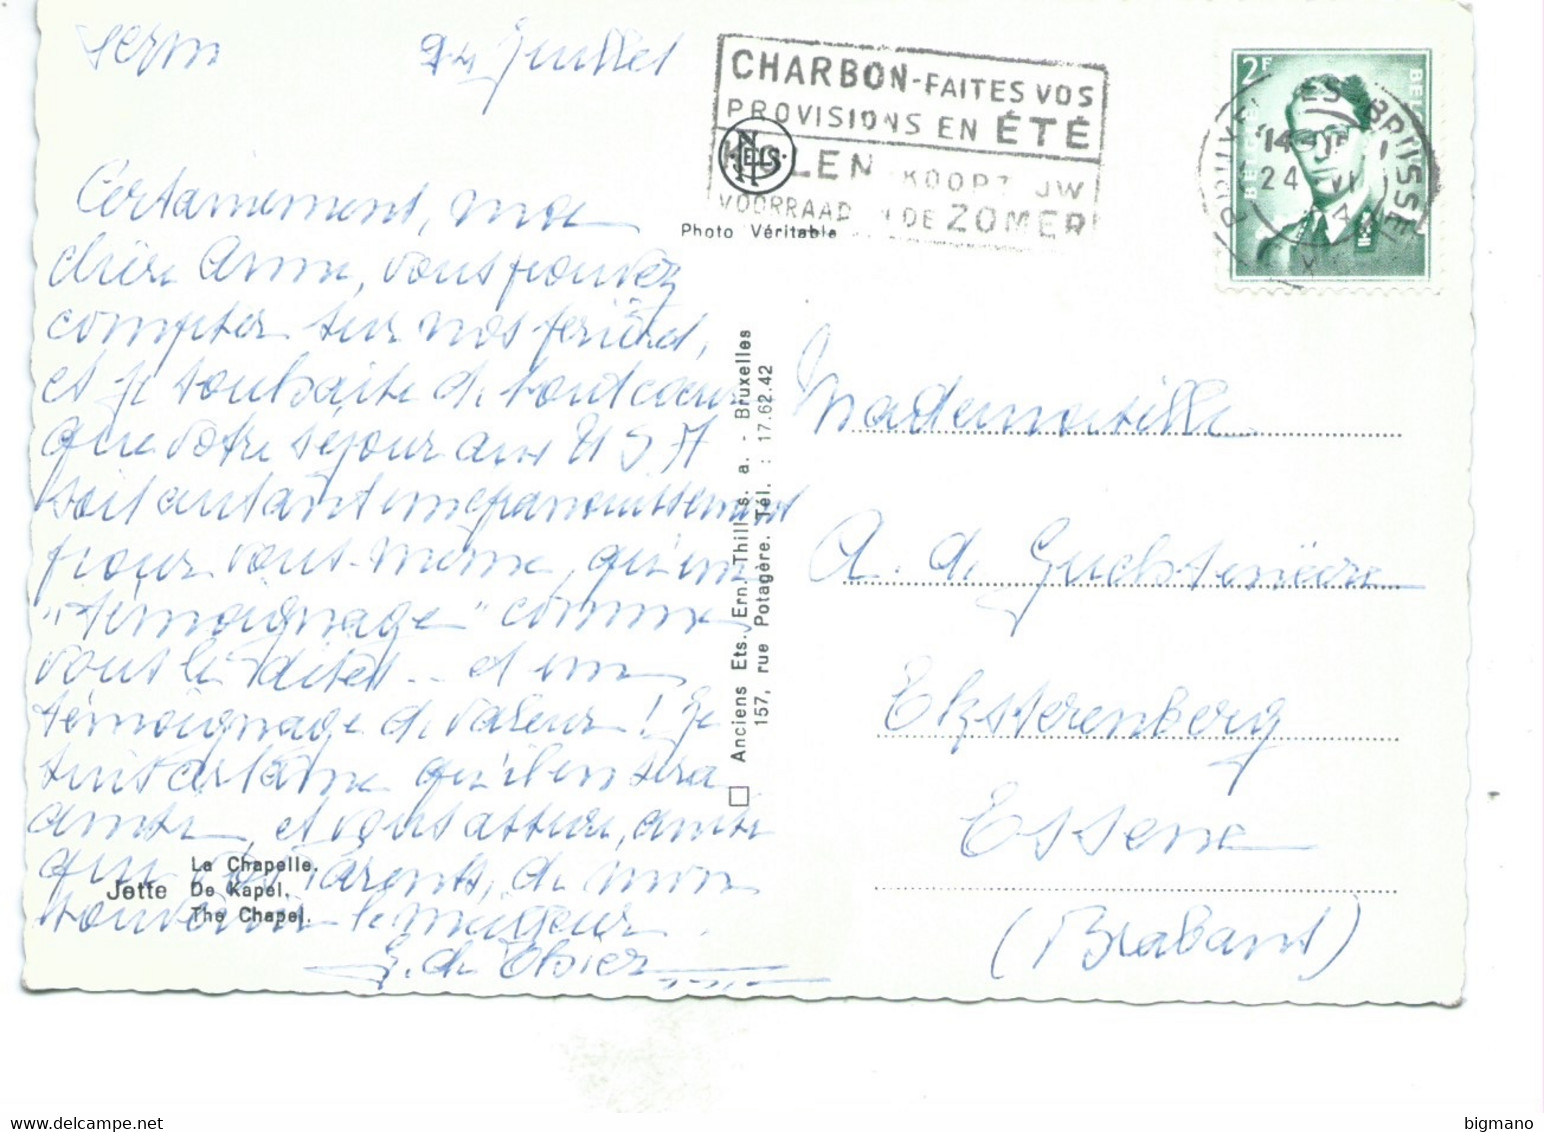 24 Juillet
Certainement, ma
chère Anne, vous pouvez
compter sur nos prières,
et je souhaite de tout cœur
que votre séjour aux USA
soit autant un épanouissement
pour vous-même, qu'un
"témoignage" comme
vous le dites... et un
témoignage de valeur! Je
suis certaine qu'il en sera
ainsi, et vous assure, ainsi
que vos Parents, de mon
souvenir le meilleur.
CHARBON-FAITES VOS
PROVISIONS EN ÉTÉ
KOLEN KOOPT UW
VOORRAAD IN DE ZOMER
NELS
Photo Véritable
2F
BELGIE BELGIQUE
BRUXELLES BRUSSEL
24
Anciens Ets. Ern. Thill s. a. - Bruxelles
157, rue Potagère. Tél. : 17.62.42
Mademoiselle
A. de
Eksterenberg
Essene
(Brabant)
Jette
La Chapelle.
De Kapel.
The Chapel.
bigmano